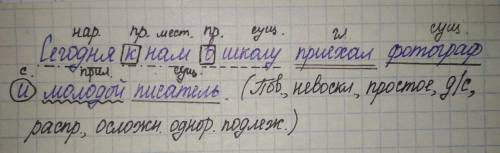 нар. пр. мест. пр. сущ. гл. сущ.
Сегодня к нам в школу приехал фотограф
с. прил. сущ.
и молодой писатель. (Пов., невоскл., простое, д/с,
распр., осложн. однор. подлеж.)